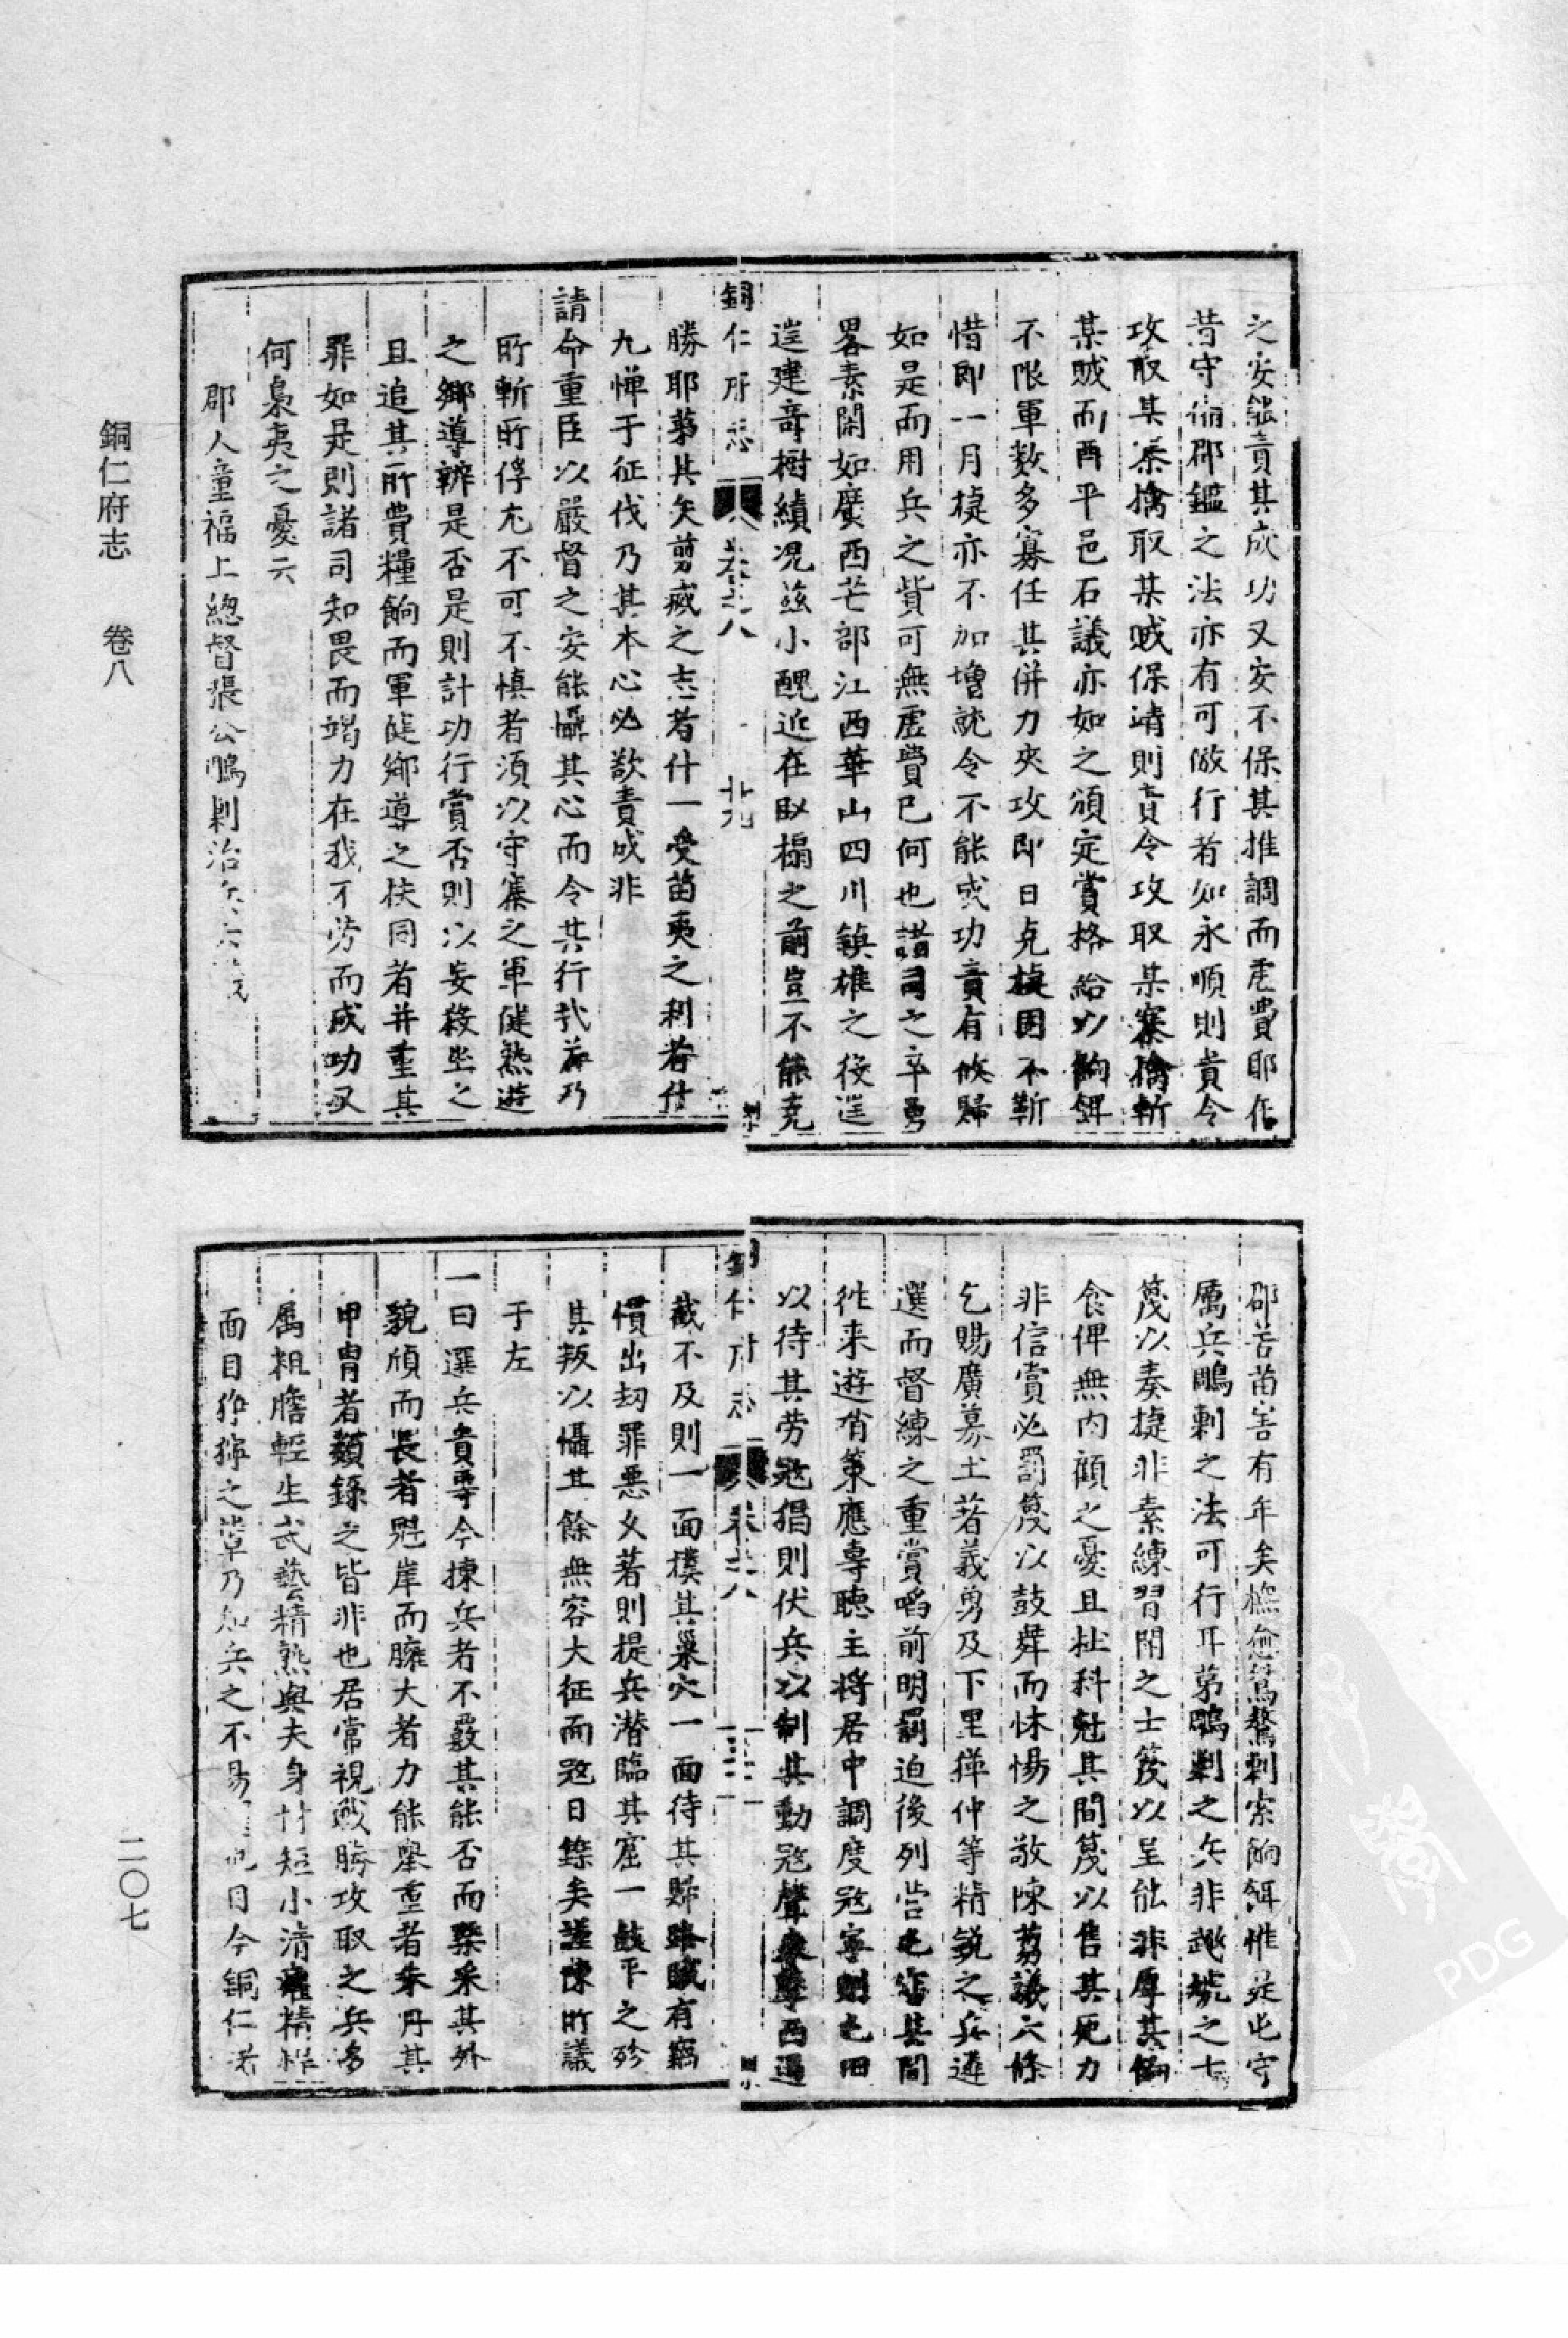 之安能責其成功又安不保其推調而虛費耶作
昔守備郡鑑之法亦有可倣行者如永順則責令
攻取某寨擒取某賊保靖則責令攻取某寨擒斬
某賊而酉平邑石議亦如之頒定賞格給以餉餌
不限軍數多寡任其併力夾攻即日克捷固不靳
惜即一月捷亦不加增統令不能成功責有攸歸
如是而用兵之貲可無虛費已何也諸司之卒勇
畧素閑如廣西芒部江西華山四川鎮雄之役逞逞
建奇樹績况茲小醜近在臥榻之前豈不能克
銅仁府志 卷之八 廿九
勝耶苐其矢剪滅之志者什一受苗夷之利者什
九憚于征伐乃其本心必欲責成非
請命重臣以嚴督之安能懾其心而令其行哉若乃
所斬所俘尤不可不慎者須以守寨之軍健熟遊
之鄉導辨是否是則計功行賞否則以妄殺坐之
且追其所費糧餉而軍健鄉導之扶同者并重其
罪如是則諸司知畏而竭力在我不勞而成功又
何梟夷之憂云
郡人童福上總督張公鵰剿治兵六
郡苦苗害有年矣撫愈驁剿索餉餌惟是屯守
厲兵鵰剿之法可行耳苐鵰剿之兵非趫號之士
篾以奏捷非素練習閑之士篾以呈能非厚其餉
食俾無内顧之憂且杜科尅其間篾以售其死力
非信賞必罰篾以鼓舞而怵惕之敢陳芻議六條
乞賜廣募土著義勇及下里㺒仲等精銳之兵遴
選而督練之重賞啗前明罰迫後列營屯寨其間
徃来遊哨策應專聽主將居中調度宼寧則屯田
以待其劳宼猖則伏兵以制其動宼聲東擊西遏
銅仁府志 卷之八 三十
截不及則一面撲其巢穴一面待其歸路賊有竊
慣出刼罪惡久著則提兵潜臨其窟一鼓平之殄
其叛以懾其餘無容大征而宼日銷矣謹陳所議
于左
一曰選兵貴專今揀兵者不覈其能否而槩采其外
貌頎而長者魁岸而臃大者力能舉重者朱丹其
甲胄者類錄之皆非也居常視戰勝攻取之兵多
属粗膽輕生武藝精熟與夫身材短小清癯精悍
面目狰獰之輩乃知兵之不易 也目今銅仁
銅仁府志 卷八
二〇七